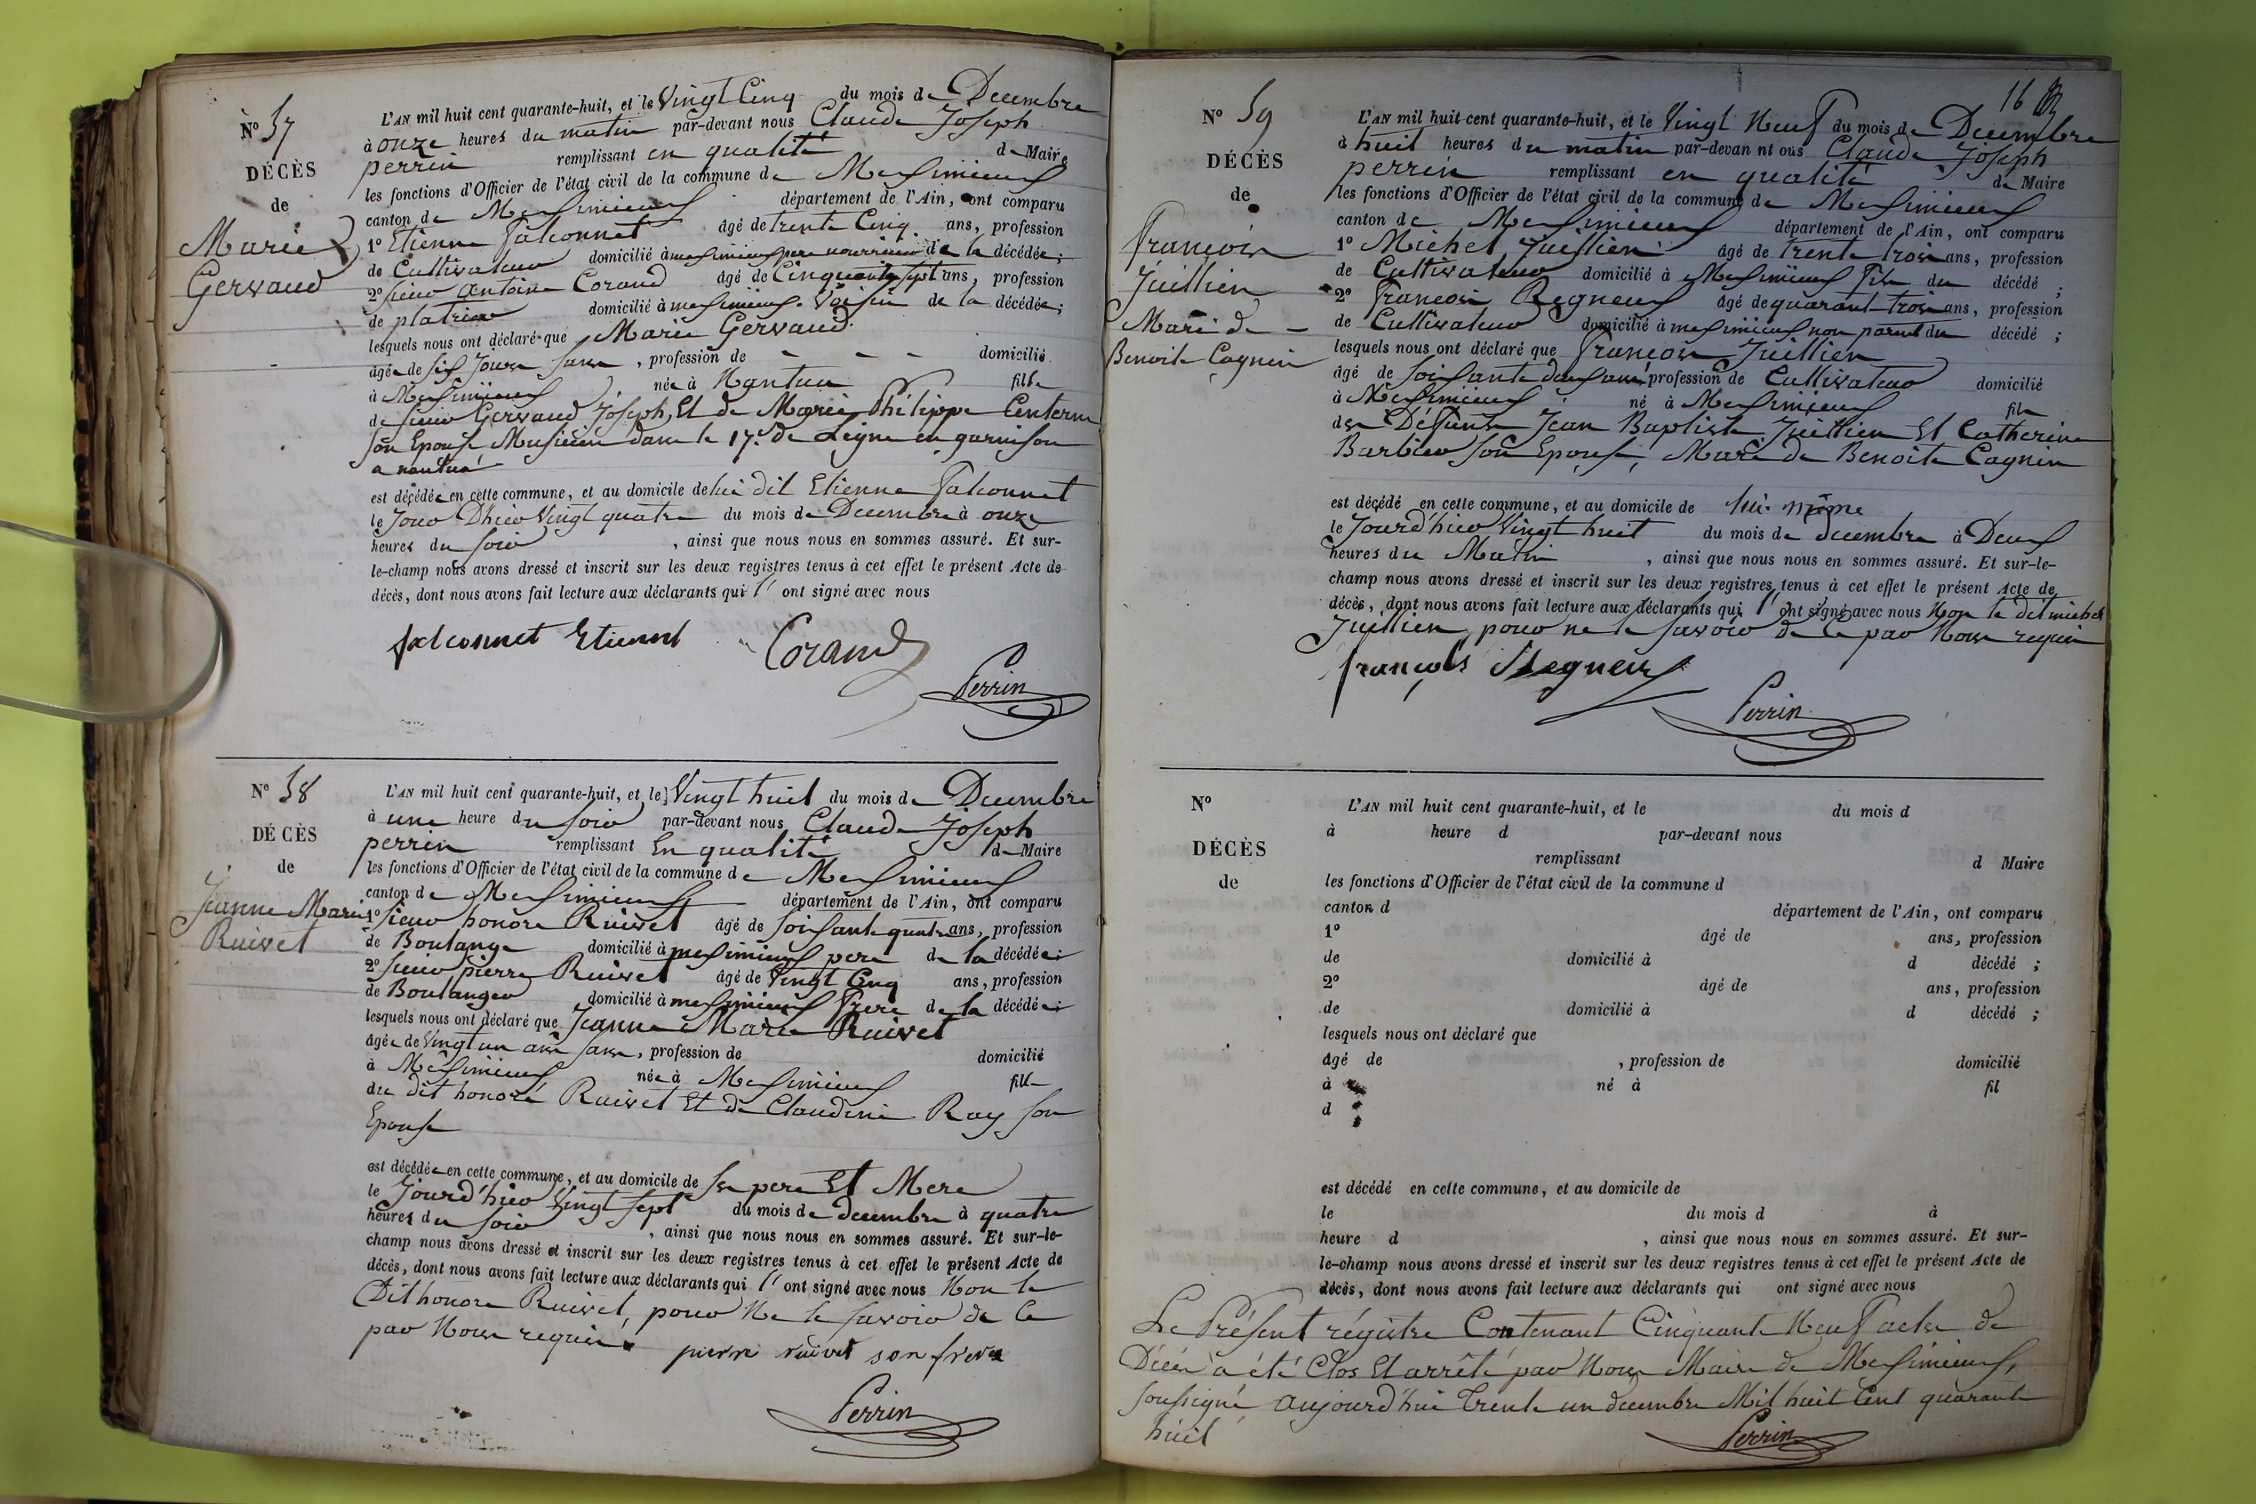 N° 57
DÉCÈS
de
Marie
Gervaud
L'AN mil huit cent quarante-huit, et le Vingt Cinq du mois de Decembre
à onze heures du matin par-devant nous Claude Joseph
perrin remplissant en qualité de Maire
les fonctions d'Officier de l'état civil de la commune de Messimieux
canton de Messimieux département de l'Ain, ont comparu
1° Etienne Falconnet âgé de trente Cinq ans, profession
de Cultivateur domicilié à messimieux pere nourricier de la décédée ;
2° sieur antoine Corand âgé de Cinquante sept ans, profession
de platrier domicilié à messimieux Voisin de la décédée ;
lesquels nous ont déclaré que Marie Gervaud
âgée de six Jours sans , profession de - - - domicilié
à Messimieux née à Nantua fille
de sieur Gervaud Joseph, Et de Marie Philippe Centerne
son Epouse Musicien dans le 17e de Ligne en garnison
a nantua
est décédée en cette commune, et au domicile de lui dit Etienne Falconnet
le Jour D'hier Vingt quatre du mois de Decembre à onze
heures du soir , ainsi que nous nous en sommes assuré. Et sur-
le-champ nous avons dressé et inscrit sur les deux registres tenus à cet effet le présent Acte de
décès, dont nous avons fait lecture aux déclarants qui l' ont signé avec nous
falconnet Etienne Corand
Perrin
N° 58
DÉCÈS
de
Jeanne Marie
Ruivet
L'AN mil huit cent quarante-huit, et le Vingt huit du mois de Decembre
à une heure du soir par-devant nous Claude Joseph
perrin remplissant En qualité de Maire
les fonctions d'Officier de l'état civil de la commune de Messimieux
canton de Messimieux département de l'Ain, ont comparu
1° sieur honoré Ruivet âgé de soixante quatre ans, profession
de Boulanger domicilié à messimieux pere de la décédée ;
2° sieur pierre Ruivet âgé de Vingt Cinq ans, profession
de Boulanger domicilié à messimieux frere de la décédée ;
lesquels nous ont déclaré que Jeanne Marie Ruivet
âgée de Vingt un ans sans , profession de domicilié
à Messimieux née à Messimieux fille
du dit honoré Ruivet Et de Claudine Ray son
Epouse
est décédée en cette commune, et au domicile de ses pere Et Mere
le Jourd'hier Vingt sept du mois de decembre à quatre
heures du soir , ainsi que nous nous en sommes assuré. Et sur-le-
champ nous avons dressé et inscrit sur les deux registres tenus à cet effet le présent Acte de
décès, dont nous avons fait lecture aux déclarants qui l' ont signé avec nous Non le
Dit honoré Ruivet, pour Ne le savoir de Ce
par Nous requis
pierre ruivet son frere
Perrin
16
N° 59
DÉCÈS
de
François
Juillien
Mari de -
Benoite Cagnin
L'AN mil huit cent quarante-huit, et le Vingt Neuf du mois de Decembre
à huit heures du matin par-devan nt ous Claude Joseph
perrin remplissant en qualité de Maire
les fonctions d'Officier de l'état civil de la commune de Messimieux
canton de Messimieux département de l'Ain, ont comparu
1° Michel Juillien âgé de trente trois ans, profession
de Cultivateur domicilié à Messimieux fils du décédé ;
2° françois Regneux âgé de quarante trois ans, profession
de Cultivateur domicilié à messimieux non parent du décédé ;
lesquels nous ont déclaré que françois Juillien
âgé de soixante deux ans profession de Cultivateur domicilié
à Messimieux né à Messimieux fils
des Défunts Jean Baptiste Juillien Et Catherine
Barbier son Epouse, Mari de Benoite Cagnin
est décédé en cette commune, et au domicile de lui-même
le Jourd'hier Vingt huit du mois de decembre à Deux
heures du Matin , ainsi que nous nous en sommes assuré. Et sur-le-
champ nous avons dressé et inscrit sur les deux registres tenus à cet effet le présent Acte de
décès, dont nous avons fait lecture aux déclarants qui l' ont signé avec nous Non le dit michel
Juillien pour ne le savoir de Ce par Nous requis
françois Regneux
Perrin
N°
DÉCÈS
de
L'AN mil huit cent quarante-huit, et le du mois d
à heure d par-devant nous
remplissant d Maire
les fonctions d'Officier de l'état civil de la commune d
canton d département de l'Ain, ont comparu
1° âgé de ans, profession
de domicilié à d décédé ;
2° âgé de ans, profession
de domicilié à d décédé ;
lesquels nous ont déclaré que
âgé de , profession de domicilié
à né à fil
d
est décédé en cette commune, et au domicile de
le du mois d à
heure d , ainsi que nous nous en sommes assuré. Et sur-
le-champ nous avons dressé et inscrit sur les deux registres tenus à cet effet le présent Acte de
décès, dont nous avons fait lecture aux déclarants qui ont signé avec nous
Le Présent régistre Contenant Cinquante Neuf actes de
Décès a été Clos Et arrêté par Nous Maire de Messimieux,
soussigné aujourd'hui trente un decembre Mil huit Cent quarante
huit
Perrin